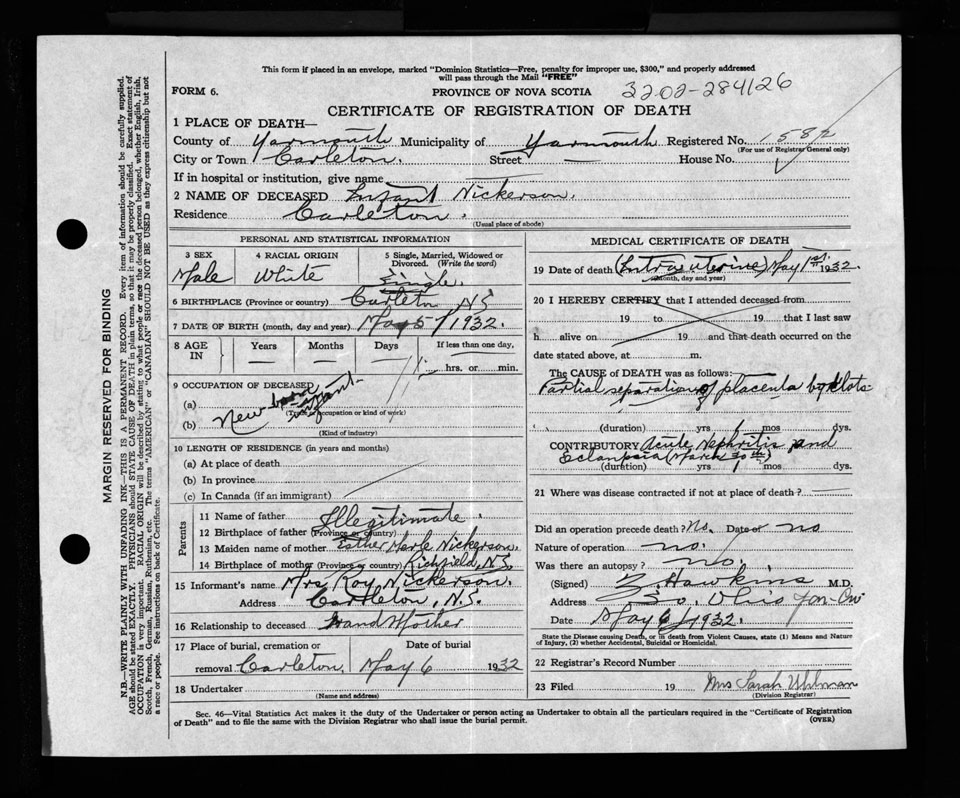 This form if placed in an envelope, marked "Dominion Statistics—Free, penalty for improper use, $300," and properly addressed
will pass through the Mail "FREE"
FORM 6. PROVINCE OF NOVA SCOTIA 3202-284126
CERTIFICATE OF REGISTRATION OF DEATH
1 PLACE OF DEATH—
County of Yarmouth Municipality of Yarmouth Registered No. 1582
(For use of Registrar General only)
City or Town Carleton. Street — House No.
If in hospital or institution, give name
2 NAME OF DECEASED Infant Nickerson.
Residence Carleton.
(Usual place of abode)
PERSONAL AND STATISTICAL INFORMATION
3 SEX 4 RACIAL ORIGIN 5 Single, Married, Widowed or Divorced. (Write the word)
Male White Single.
6 BIRTHPLACE (Province or country) Carleton N.S.
7 DATE OF BIRTH (month, day and year) May 5 1932.
8 AGE IN Years Months Days If less than one day,
hrs. or min.
9 OCCUPATION OF DECEASED
(a) (Trade occupation or kind of work)
(b) New born infant.
(Kind of industry)
10 LENGTH OF RESIDENCE (in years and months)
(a) At place of death
(b) In province
(c) In Canada (if an immigrant)
Parents
11 Name of father Illegitimate.
12 Birthplace of father (Province or country)
13 Maiden name of mother Esther Merle Nickerson.
14 Birthplace of mother (Province or country) Richfield, N.S.
15 Informant's name Mrs Roy Nickerson.
Address Carleton, N.S.
16 Relationship to deceased Grand Mother
17 Place of burial, cremation or Date of burial
removal Carleton. May 6 1932
18 Undertaker
(Name and address)
MEDICAL CERTIFICATE OF DEATH
19 Date of death (Intra uterine) May 1st 1932.
(Month, day and year)
20 I HEREBY CERTIFY that I attended deceased from
19 to 19 that I last saw
h alive on 19 and that death occurred on
date stated above, at m.
The CAUSE OF DEATH was as follows:
Partial separation of placenta by clots
(duration) yrs 1 mos dys.
CONTRIBUTORY Acute Nephritis and
Eclampsia (March 30th)
(duration) yrs 1 mos dys.
21 Where was disease contracted if not at place of death?
Did an operation precede death? No. Date of no
Nature of operation no.
Was there an autopsy? no.
(Signed) Z Hawkins M.D.
Address So. Ohio
Date May 6 1932.
State the Disease causing Death, or in death from Violent Causes, state (1) Means and Nature
of Injury, (2) whether Accidental, Suicidal or Homicidal.
22 Registrar's Record Number
23 Filed 19 Mrs Sarah Uhlman
(Division Registrar)
Sec. 46—Vital Statistics Act makes it the duty of the Undertaker or person acting as Undertaker to obtain all the particulars required in the "Certificate of Registration
of Death" and to file the same with the Division Registrar who shall issue the burial permit. (OVER)
MARGIN RESERVED FOR BINDING
N.B—WRITE PLAINLY WITH UNFADING INK—THIS IS A PERMANENT RECORD. Every item of information should be carefully supplied.
AGE should be stated EXACTLY. PHYSICIANS should STATE CAUSE OF DEATH in plain terms, so that it may be properly classified. Exact statement of
OCCUPATION is very important. RACIAL ORIGIN will be described by stating to what people or race the deceased person belonged, whether English, Irish,
Scotch, French, German, Russian, Ruthenian, etc. The terms "AMERICAN" or "CANADIAN" SHOULD NOT BE USED as they express citizenship but not
a race or people. See instructions on back of Certificate.